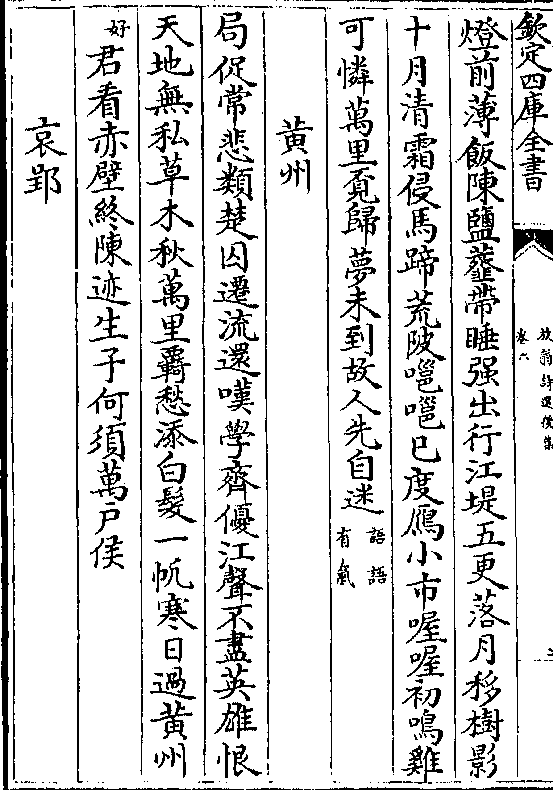 欽定四庫全書
放翁詩選後集
卷六
燈前薄飯陳鹽虀帶睡强出行江堤五更落月移樹影
十月清霜侵馬蹄荒陂嗈嗈已度鴈小市喔喔初鳴雞
可憐萬里覔歸夢未到故人先自迷語語有氣
黄州
局促常悲類楚囚遷流還嘆學齊優江聲不盡英雄恨
天地無私草木秋萬里羇愁添白髮一帆寒日過黄州
好君看赤壁終陳迹生子何須萬戶侯
哀郢